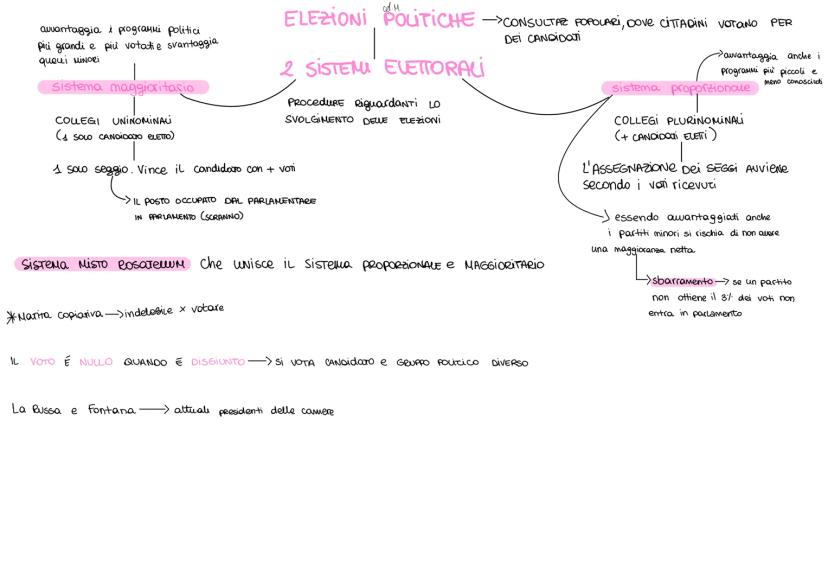 ELEZIONI POLITICHE → CONSULTAZ POPOLARI, DOVE CITTADINI VOTANO PER
DEI CANDIDATI
2 SISTEMI ELETTORALI
PROCEDURE RIGUARDANTI LO
SVOLGIMENTO DELLE ELEZIONI
avvantaggia i programmi politici
più grandi e più votati e svantaggia
quelli minori
sistema maggioritario
COLLEGI UNINOMINALI
(1 SOLO CANDIDATO ELETTO)
1 solo seggio. Vince il candidato con + voti
→ IL POSTO OCCUPATO DAL PARLAMENTARE
IN PARLAMENTO (SCRANNO)
→ avvantaggia anche i
programmi più piccoli e
meno conosciuti
sistema proporzionale
COLLEGI PLURINOMINALI
(+ CANDIDATI ELETTI)
L'ASSEGNAZIONE DEI SEGGI AVVIENE
secondo i voti ricevuti
→ essendo avvantaggiati anche
i partiti minori si rischia di non avere
una maggioranza netta
→ sbarramento → se un partito
non ottiene il 3% dei voti non
entra in parlamento
SISTEMA MISTO ROSATELLUM che UNISCE IL SISTEMA PROPORZIONALE e MAGGIORITARIO
* Matita copiativa → indelebile x votare
IL VOTO É NULLO QUANDO É DISGIUNTO → SI VOTA CANDIDATO E GRUPPO POLITICO DIVERSO
La Russa e Fontana → attuali presidenti delle camere